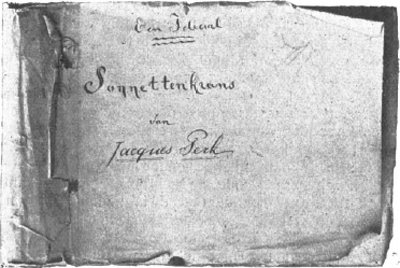 Een Ideaal
Sonnettenkrans
van
Jacques Perk